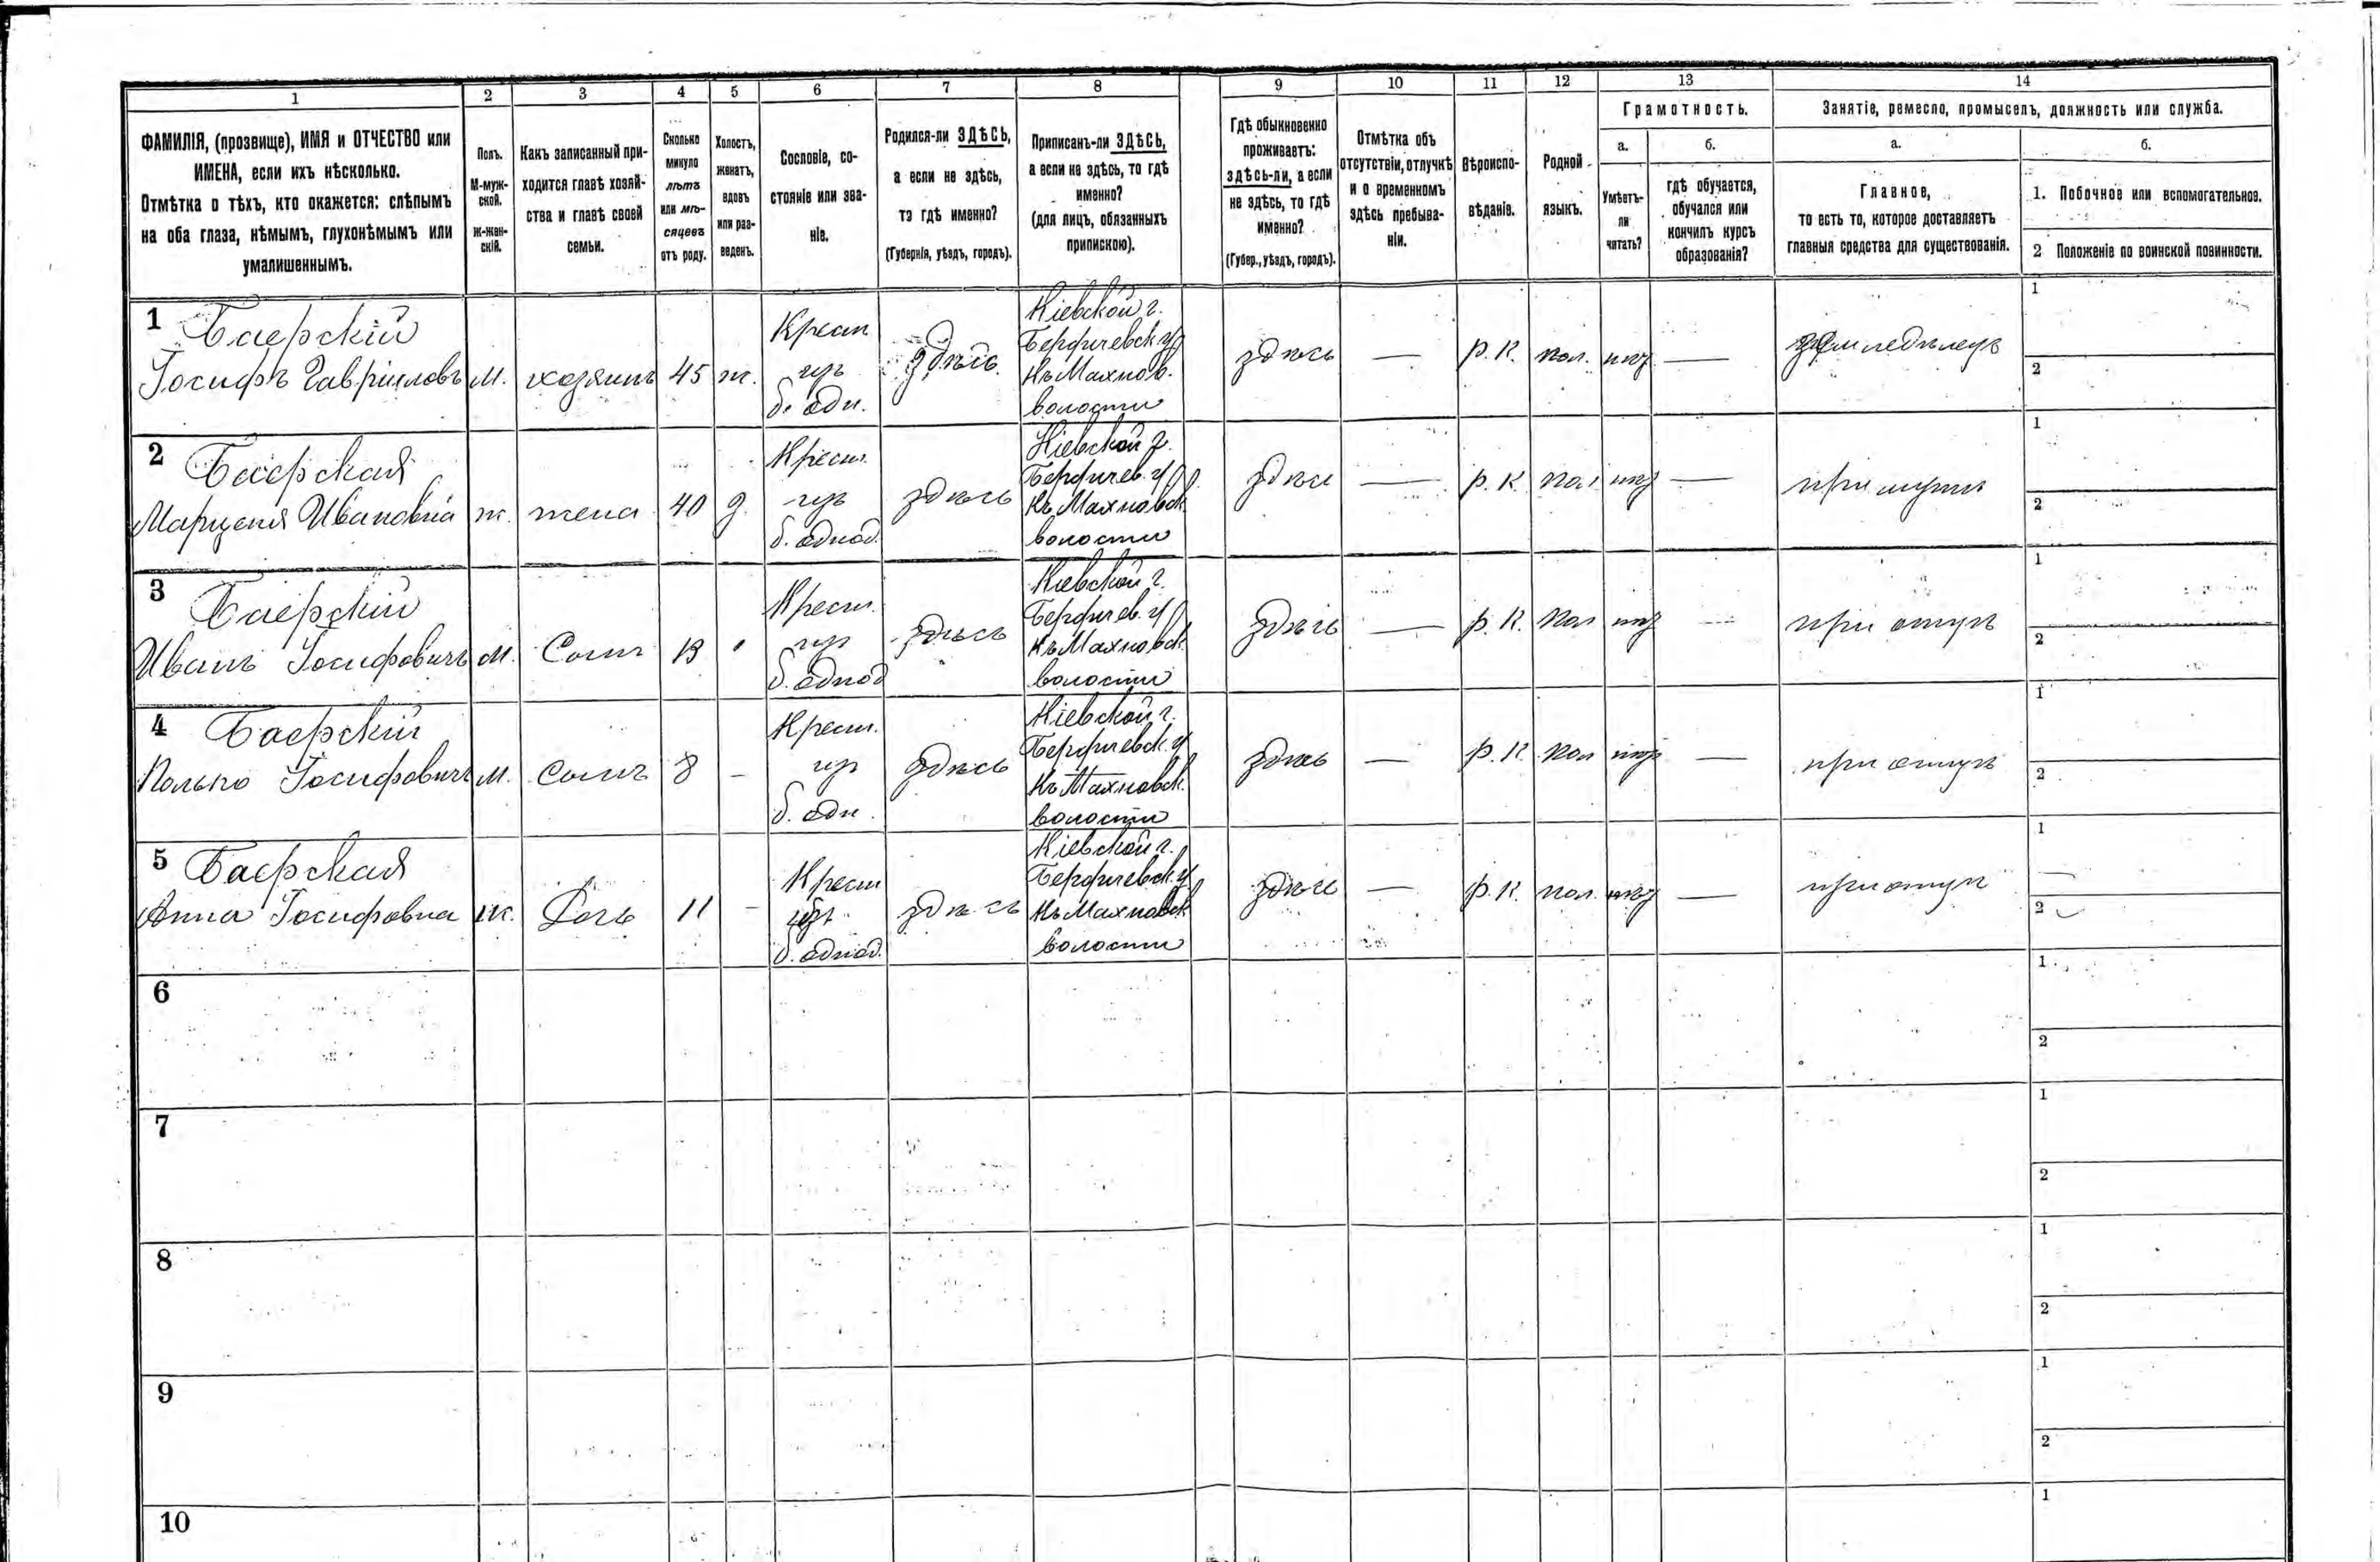 1 2 3 4 5 6 7 8 9 10 11 12 13 14
ФАМИЛІЯ, (прозвище), ИМЯ и ОТЧЕСТВО или
ИМЕНА, если ихъ нѣсколько.
Отмѣтка о тѣхъ, кто окажется: слѣпымъ
на оба глаза, нѣмымъ, глухонѣмымъ или
умалишеннымъ.
Полъ.
М-муж-
ской.
ж-жен-
скій.
Какъ записанный при-
ходится главѣ хозяй-
ства и главѣ своей
семьи.
Сколько
минуло
лѣтъ
или мѣ-
сяцевъ
отъ роду.
Холостъ,
женатъ,
вдовъ
или раз-
веденъ.
Сословіе, со-
стояніе или зва-
ніе.
Родился-ли ЗДѢСЬ,
а если не здѣсь,
то гдѣ именно?
(Губернія, уѣздъ, городъ).
Приписанъ-ли ЗДѢСЬ,
а если не здѣсь, то гдѣ
именно?
(для лицъ, обязанныхъ
припискою).
Гдѣ обыкновенно
проживаетъ:
здѣсь-ли, а если
не здѣсь, то гдѣ
именно?
(Губер., уѣздъ, городъ).
Отмѣтка объ
отсутствіи, отлучкѣ
и о временномъ
здѣсь пребыва-
ніи.
Вѣроиспо-
вѣданіе.
Родной
языкъ.
Грамотность.
а.
Умѣетъ-
ли
читать?
б.
гдѣ обучается,
обучался или
кончилъ курсъ
образованія?
Занятіе, ремесло, промыселъ, должность или служба.
а.
Главное,
то есть то, которое доставляетъ
главныя средства для существованія.
б.
1. Побочное или вспомогательное.
2 Положеніе по воинской повинности.
1 Баерскій
Іосифъ Гавріиловъ
М.
хозяинъ
45
ж.
Крест.
изъ
б. одн.
здѣсь
Кіевской г.
Бердичевск. у
Къ Махнов.
волости
здѣсь
—
р. к.
пол.
нѣт
—
земледѣлецъ
1
2
2 Баерская
Марцеля Ивановна
ж.
жена
40
З.
Крест.
изъ
б. однод.
здѣсь
Кіевской г.
Бердичев. у
Къ Махновск.
волости
здѣсь
—
р. к.
пол
нѣт
—
при мужѣ
1
2
3 Баерскій
Иванъ Іосифовичъ
М.
Сынъ
13
Крест.
изъ
б. однод
здѣсь
Кіевской г.
Бердичев. у
Къ Махновск.
волости
здѣсь
—
р. к.
пол
нѣт
—
при отцѣ
1
2
4 Баерскій
Іосифовичъ
М.
Сынъ
8
–
Крест.
изъ
б. одн.
здѣсь
Кіевской г.
Бердичевск. у
Къ Махновск.
волости
здѣсь
—
р. к
пол
нѣт
—
при отцѣ
1
2
5 Баерская
Анна Іосифовна
ж.
Дочь
11
–
Крест
изъ
б. однод.
здѣсь
Кіевской г.
Бердичевск. у
Къ Махновск
волости
здѣсь
—
р. к.
пол.
нѣт
—
при отцѣ
1
2
6
1
2
7
1
2
8
1
2
9
1
2
10
1